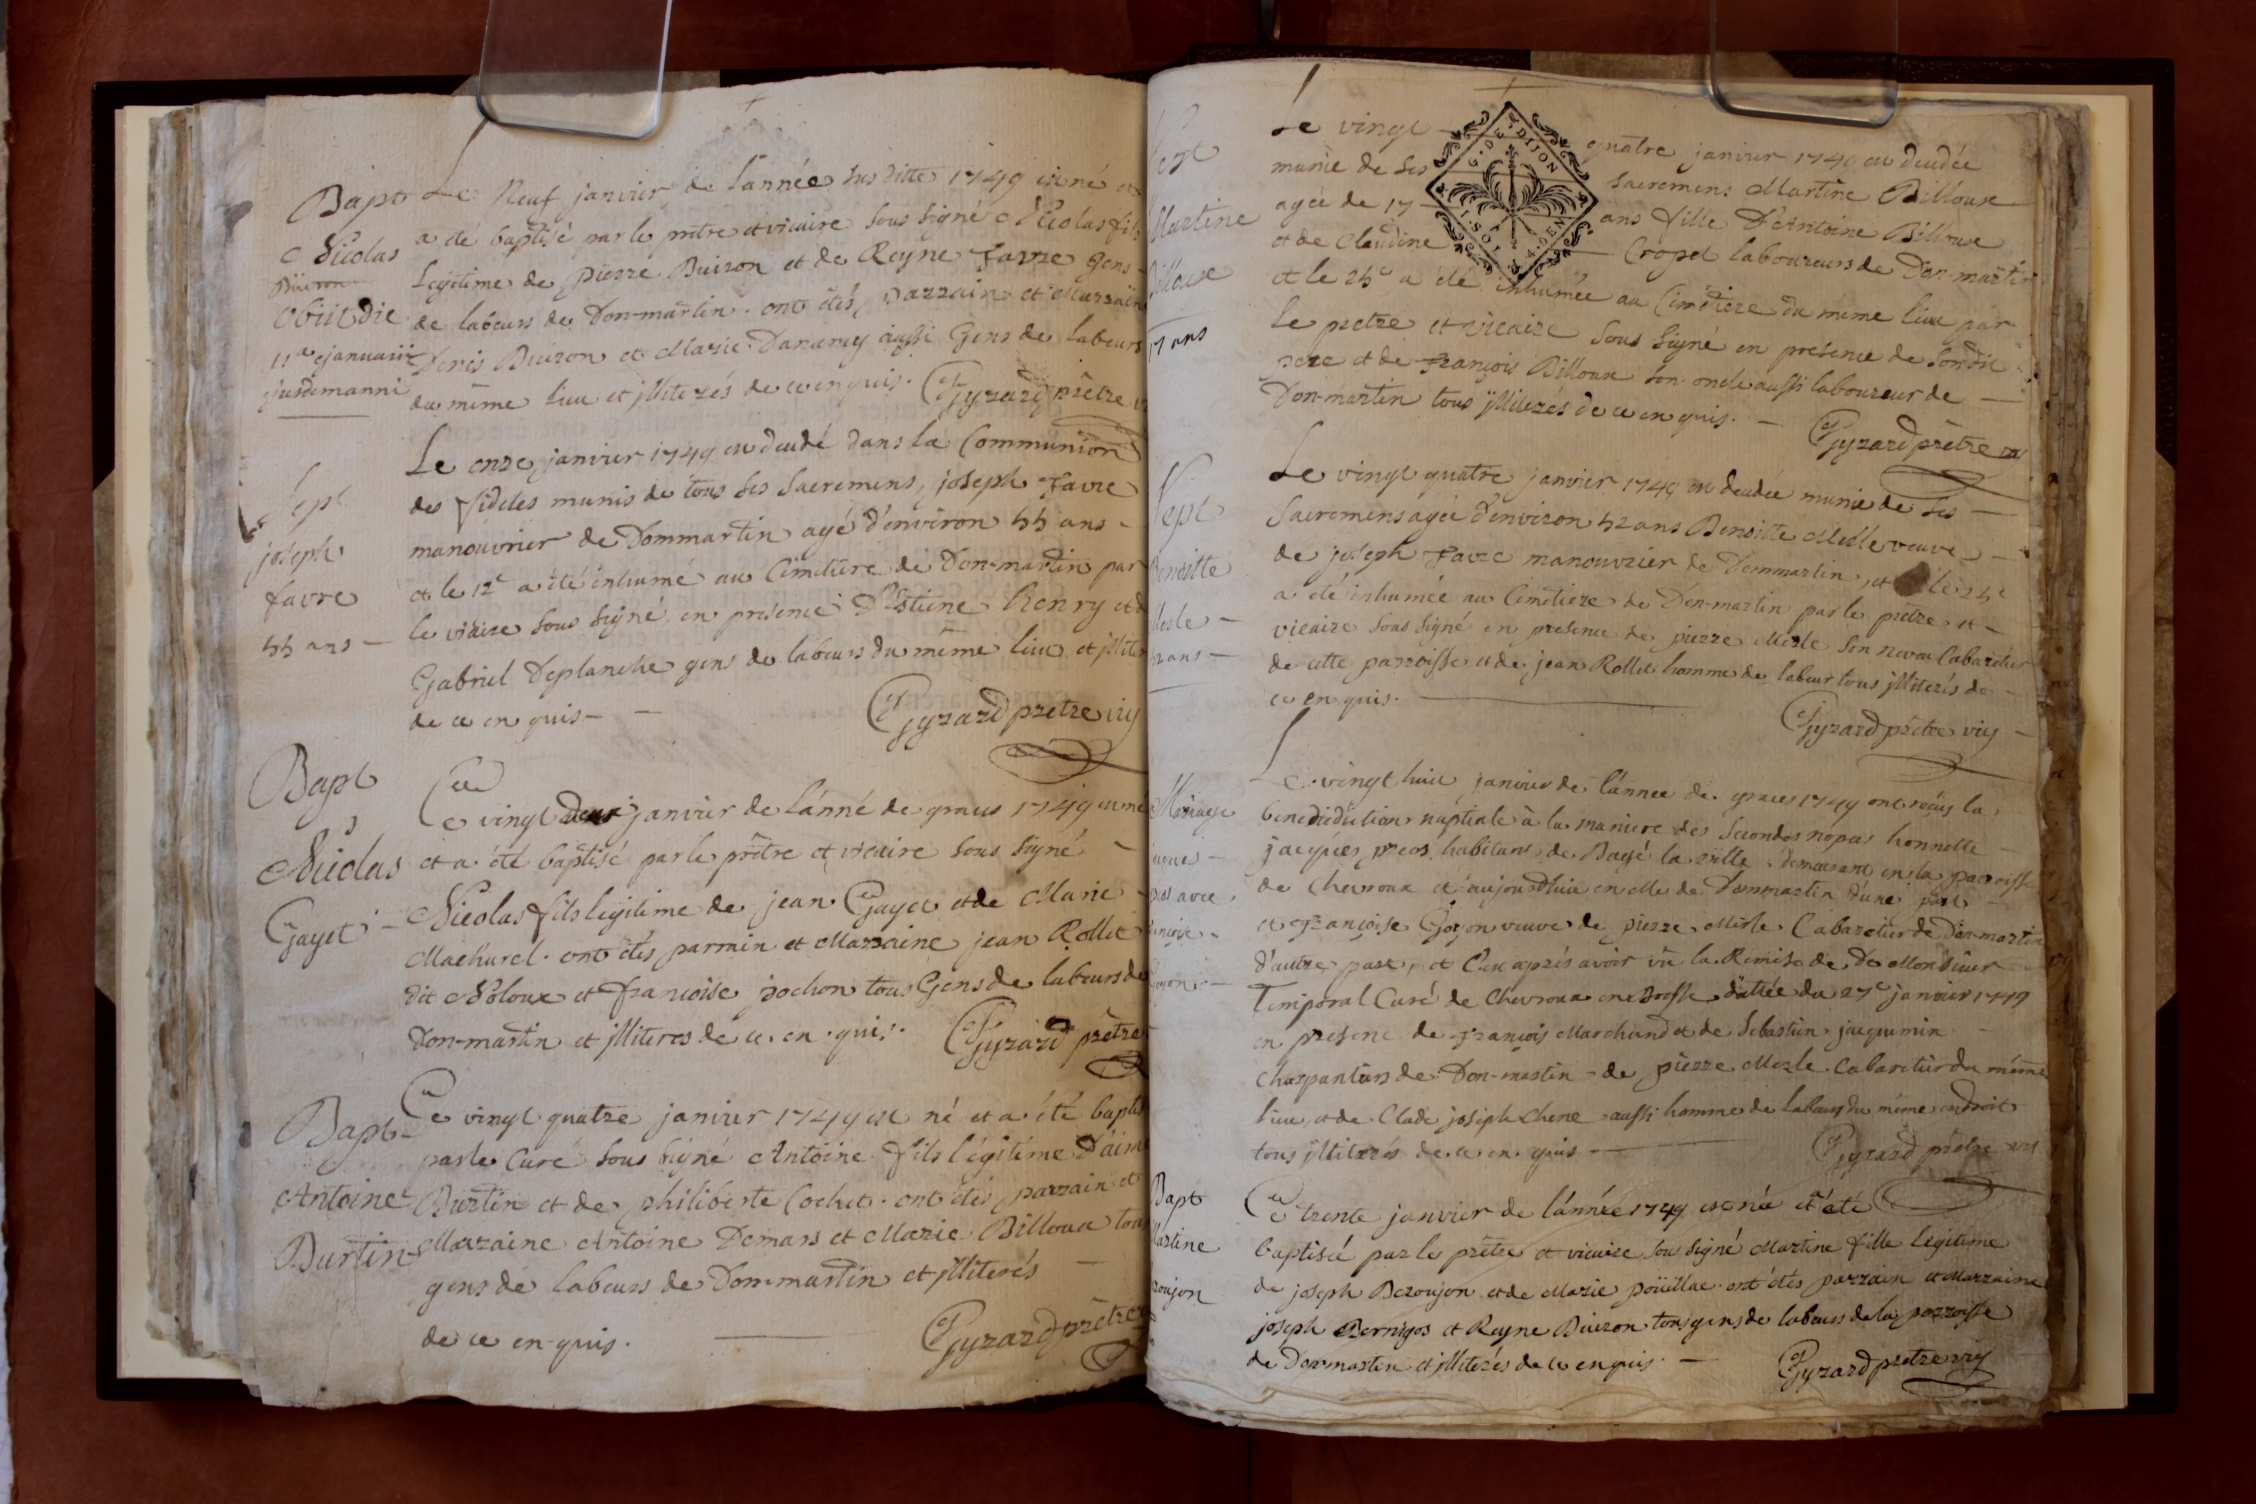 Bapt
Nicolas
Buiron
Obiit die
11a januarii
ejusdem anni
Le Neuf janvier de l'année susditte 1749 est né et
a été baptisé par le prêtre et vicaire sous signé Nicolas fils
Legitime de pierre Buiron et de Reyne favre Gens
de labeurs de Don-martin. ont étés parrain et Marraine
Denis Buiron et Marie Danancy aussi Gens de labeurs
du même lieu et illiterés de ce enquis. Gyrard prêtre
Sept
joseph
favre
55 ans
Le onze janvier 1749 est decedé dans la Communion
des fideles munis de tous ses Sacremens, joseph favre
manouvrier de Dommartin agé d'environ 55 ans
et le 12e a été inhumé au Cimetiere de Don-martin par
le vicaire sous signé en presence d'Estiene Henry et de
Gabriel Deplanche gens de labeurs du même lieu et illiter
de ce en quis
Gyrard pretre vic
Bapt
Nicolas
Gayet
Ce vingt deux janvier de l'anné de graces 1749 est né
et a été baptisé par le prêtre et vicaire sous signé
Nicolas fils legitime de jean Gayet et de Marie
Machurel. ont étés parrnin et Marraine jean Rollet
dit Noloux et francoise pochon tous Gens de labeurs de
Don-martin et illiteres de ce en quis. Gyrard prêtre
Bapt
Antoine
Burtin
Ce vingt quatre janvier 1749 est né et a été baptisé
par le Curé sous signé Antoine fils légitime d'aimé
Burtin et de philiberte Cochet. ont étés parrain et
Marraine Antoine Demars et Marie Billoux tous
gens de labeurs de Don-martin et illiterés
de ce en quis.
Gyrard prêtre
Sept
Martine
Billoux
17 ans
Le vingt quatre janvier 1749 est decedée
G. DE DIJON
4. DEN
1. SOL
munie de ses Sacremens Martine Billoux
agée de 17 ans fille d'Antoine Billoux
et de Claudine Cropet laboureurs de Don-martin
et le 25e a été inhumée au Cimetiere du meme lieu par
le pretre et vicaire sous signé en presence de sondit
pere et de françois Billoux son oncle aussi laboureur de
Don-martin tous illiterés de ce en quis. Gyrard prêtre
Sept
Benoitte
Merle
ans
Le vingt quatre janvier 1749 est decedée munie de ses
Sacremens agée d'environ 52 ans Benoitte Merle veuve
de joseph favre manouvrier de Dommartin, et le 25e
a été inhumée au Cimetiere de Don-martin par le prêtre et
vicaire sous signé en presence de pierre Merle son neveu Cabaretier
de cette parroisse et de jean Rollet homme de labeur tous illiterés de
ce en quis.
Gyrard prêtre vic
Mariage
avec
Le vingt huit janvier de l'annee de graces 1749 ont reçus la
benediction nuptiale à la maniere des secondes nopces honnette
jacques preos habitant de Bagé la ville demeurant en la parroisse
de Chevroux et aujourdhui en elle de Dommartin d'une part
et françoise Goyon veuve de pierre Merle Cabaretier de Don-martin
d'autre part, et Ceux après avoir vû la Remise de De Monsieur
Temporal Curé de Chevroux en Bresse dattée du 27e janvier 1749
en presence de françois Marchand et de Sebastien jacquemin
charpantiers de Don-martin de pierre Merle Cabaretier du même
lieu, et de Clade joseph Chene aussi homme de labeurs du même endroit
tous illiterés de ce en quis
Gyrard prêtre vic
Bapt
Martine
Ce trente janvier de l'année 1749 est née et été
baptisée par le prêtre et vicaire sous signé Martine fille légitime
de joseph Beroujon et de Marie pouillac. ont étés parrain et Marraine
joseph Bernigos et Reyne Buiron tous gens de labeurs de la parroisse
de Don-martin et illiterés de ce en quis.
Gyrard pretre vic